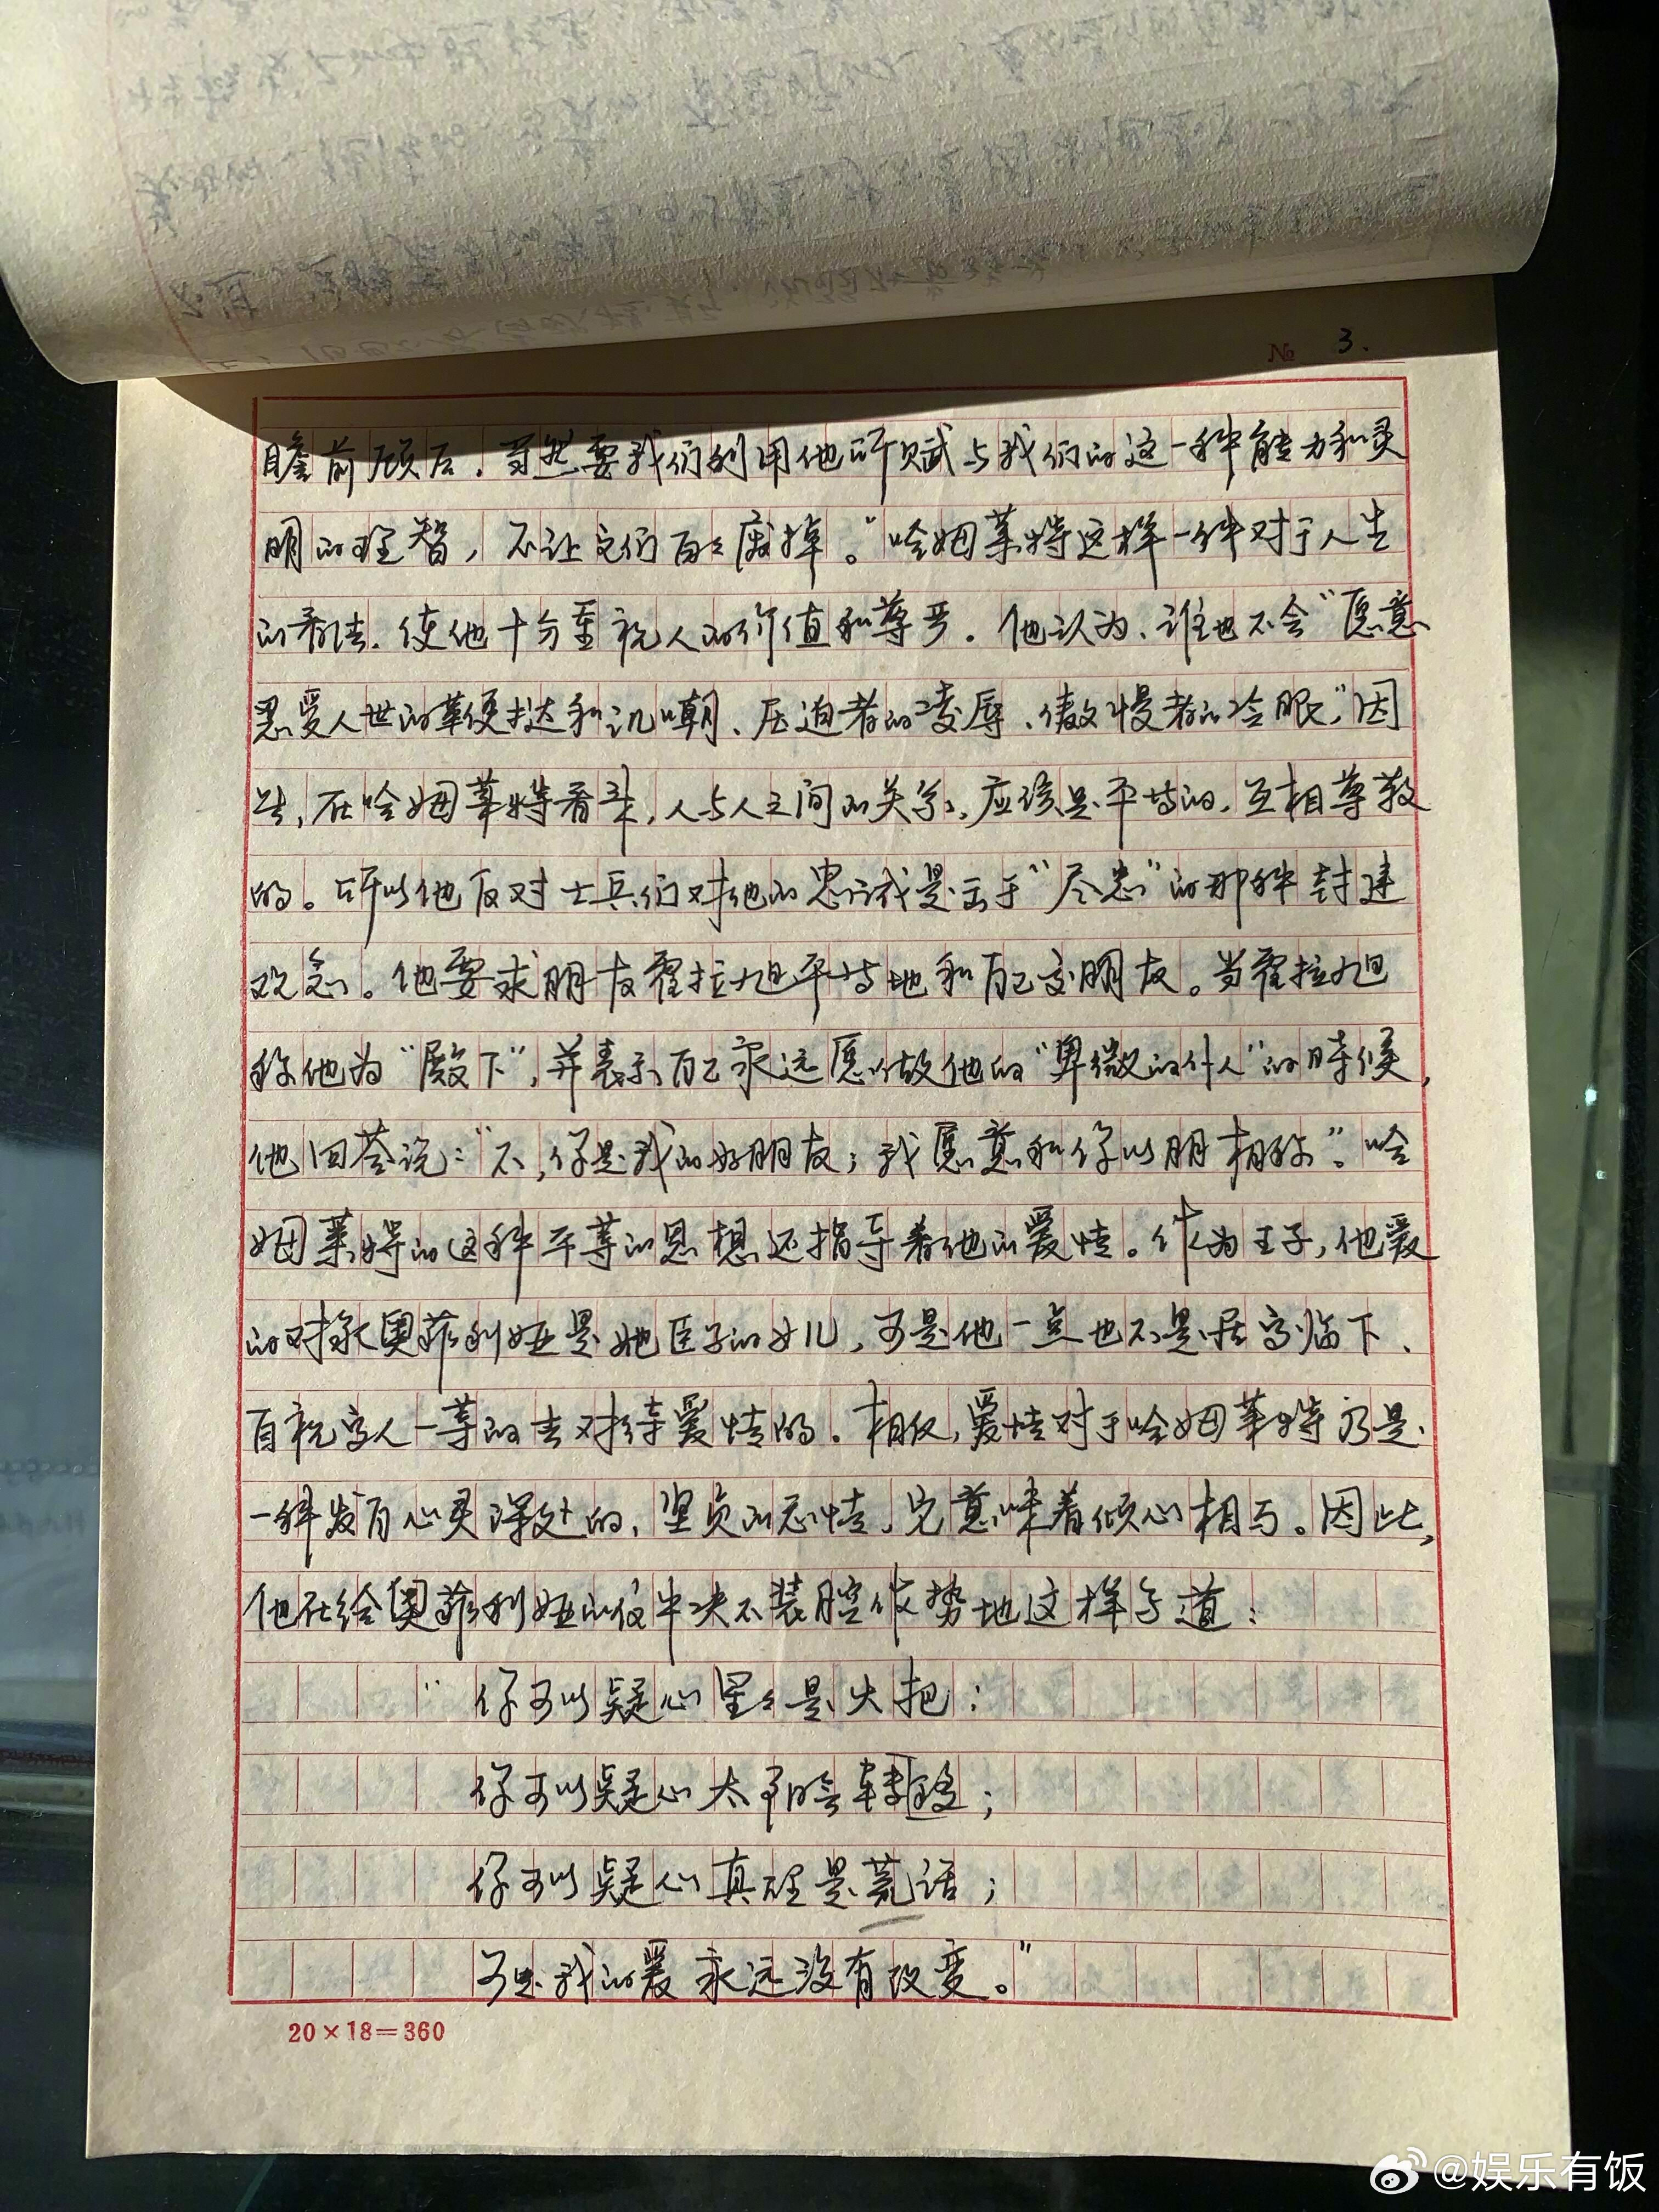 № 3.
瞻前顾后,当然要我们利用他所赋与我们的这一种能力和灵
明的理智,不让它们白白废掉。”哈姆莱特这样一种对于人生
的看法,使他十分重视人的价值和尊严。他认为、谁也不会“愿意
忍受人世的鞭挞和讥嘲、压迫者的凌辱、傲慢者的冷眼”,因
此,在哈姆莱特看来,人与人之间的关系,应该是平等的,互相尊敬
的。所以他反对士兵们对他的忠诚是出于“尽忠”的那种封建
观念。他要求朋友霍拉旭平等地和自己交朋友。当霍拉旭
称他为“殿下”,并表示自己永远愿做他的“卑微的仆人”的时候,
他回答说:“不,你是我的好朋友;我愿意和你以朋相称”。哈
姆莱特的这种平等的思想还指导着他的爱情。作为王子,他爱
的对象奥菲利娅是她臣子的女儿,可是他一点也不是居高临下、
自视高人一等的去对待爱情的。相反,爱情对于哈姆莱特乃是
一种发自心灵深处的,坚贞的恋情,它意味着倾心相与。因此,
他在给奥菲利娅的信中决不装腔作势地这样写道:
“你可以疑心星星是火把;
你可以疑心太阳会转移;
你可以疑心真理是荒话;
可是我的爱永远没有改变。”
20×18=360
@娱乐有饭